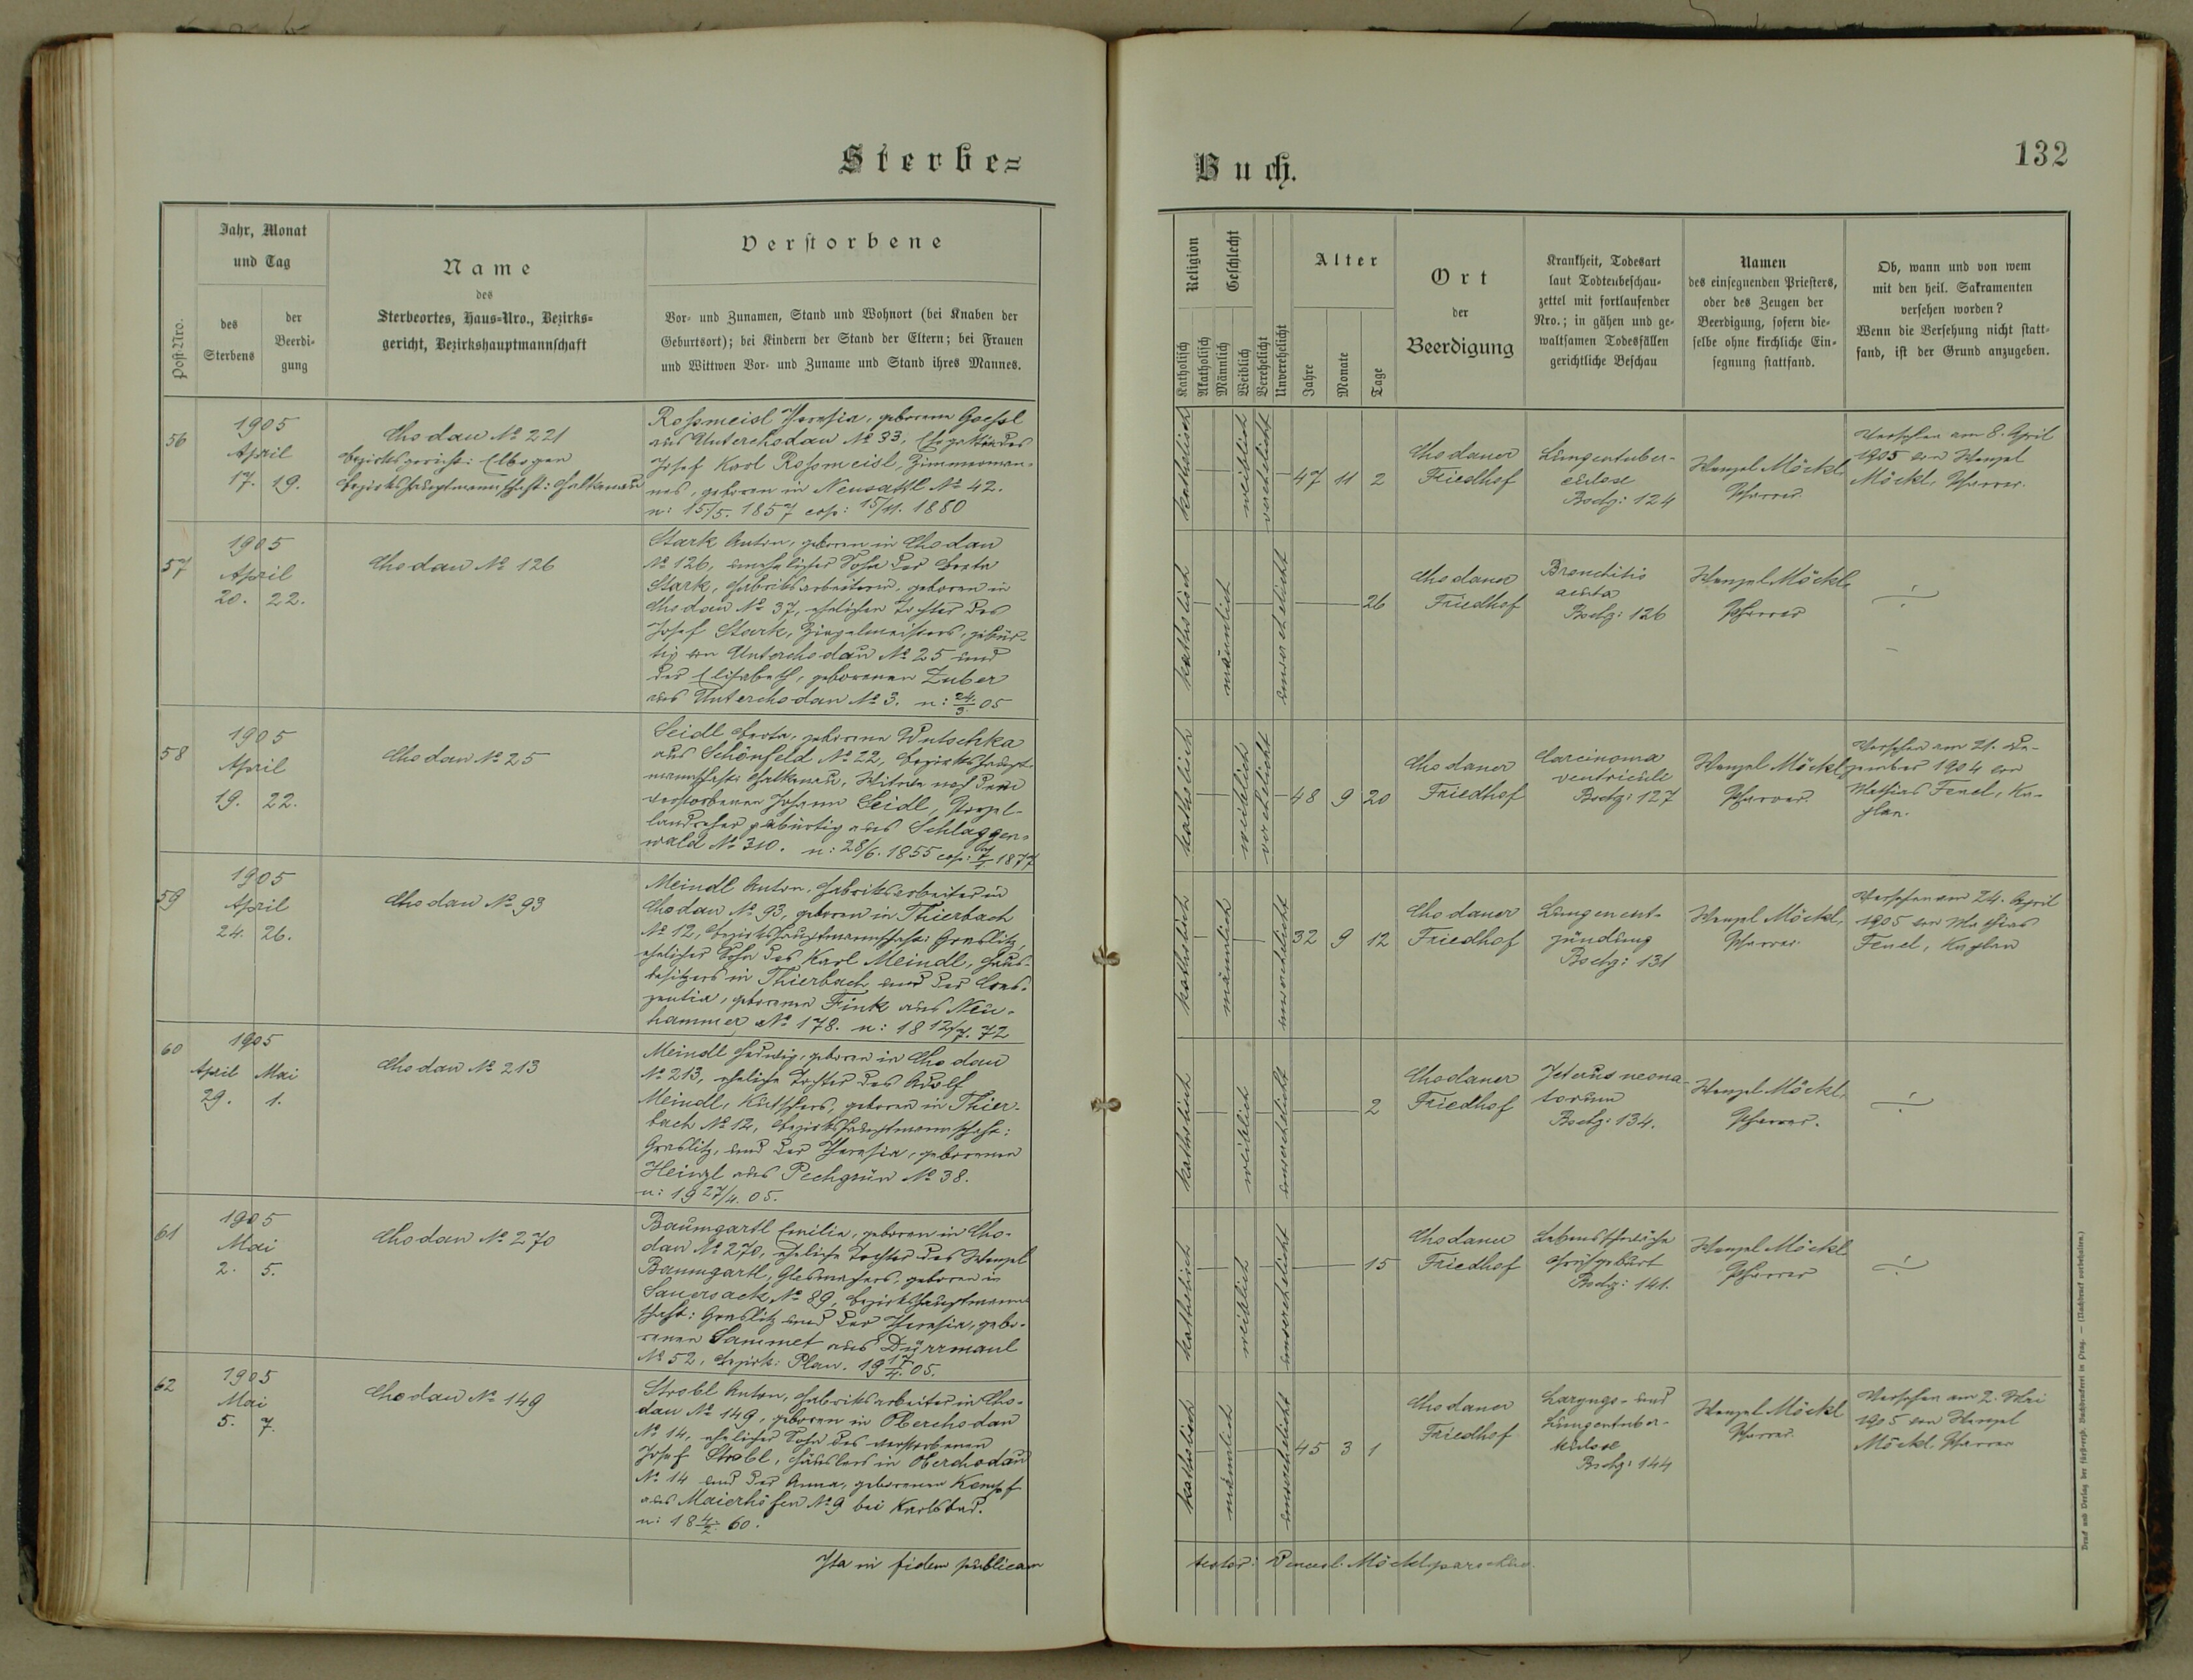 Sterbe=
Buch.
132
Post-Nro.
Jahr, Monat
und Tag
des
Sterbens
der
Beerdi-
gung
Name
des
Sterbeortes, Haus-Nro., Bezirks-
gericht, Bezirkshauptmannschaft
Verstorbene
Vor- und Zunamen, Stand und Wohnort (bei Knaben der
Geburtsort); bei Kindern der Stand der Eltern; bei Frauen
und Wittwen Vor- und Zuname und Stand ihres Mannes.
Religion
Katholisch
Akatholisch
Geschlecht
Männlich
Weiblich
Verehelicht
Unverehelicht
Alter
Jahre
Monate
Tage
Ort
der
Beerdigung
Krankheit, Todesart
laut Todtenbeschau-
zettel mit fortlaufender
Nro.; in gähen und ge-
waltsamen Todesfällen
gerichtliche Beschau
Namen
des einsegnenden Priesters,
oder des Zeugen der
Beerdigung, sofern die-
selbe ohne kirchliche Ein-
segnung stattfand.
Ob, wann und von wem
mit den heil. Sakramenten
versehen worden?
Wenn die Versehung nicht statt-
fand, ist der Grund anzugeben.
56
1905
April
17. 19.
Chodau No 221
Bezirksgericht: Elbogen
Bezirkshauptmannschaft: Falkenau
Rossmeisl Theresia, geborene Goessl
aus Unterchodau No 33, Ehegattin des
Josef Karl Rossmeisl, Zimmerman-
nes, geboren in Neusattl No 42.
n: 15/5. 1857 cop: 15/11. 1880
katholisch
weiblich
verehelicht
47 11 2
Chodauer
Friedhof
Lungentuber-
culose
Bschg: 124
Wenzel Möckl
Pfarrer
Versehen am 8. April
1905 von Wenzel
Möckl, Pfarrer.
57
1905
April
20. 22.
Chodau No 126
Stark Anton, geboren in Chodau
No 126, unehelicher Sohn der Berta
Stark, Fabriksarbeiterin, geboren in
Chodau No 37, ehelichen Tochter des
Josef Stark, Ziegelmeisters, gebür-
tig in Unterchodau No 25 und
der Elisabeth, geborenen Zuber
aus Unterchodau No 3. n: 24/3. 05
katholisch
männlich
unverehelicht
26
Chodauer
Friedhof
Bronchitis
acuta
Bschg: 126
Wenzel Möckl
Pfarrer
58
1905
April
19. 22.
Chodau No 25
Seidl Berta, geborene Wutschka
aus Schönfeld No 22, Bezirkshaupt-
mannschaft: Falkenau, Witwe nach dem
verstorbenen Johann Seidl, Porzel-
landreher gebürtig aus Schlaggen-
wald No 310. n: 28/6. 1855 cop: 1877
katholisch
weiblich
verehelicht
48 9 20
Chodauer
Friedhof
Carcinoma
ventriculi
Bschg: 127
Wenzel Möckl
Pfarrer
Versehen am 21. De-
zember 1904 von
Mathias Fenel, Ka-
plan.
59
1905
April
24. 26.
Chodau No 93
Meindl Anton, Fabriksarbeiter in
Chodau No 93, geboren in Thierbach
No 12, Bezirkshauptmannschaft: Graslitz,
ehelicher Sohn des Karl Meindl, Haus-
besitzers in Thierbach und der Cres-
zentia, geborenen Fink aus Neu-
hammer No 178. n: 18 12/7. 72
katholisch
männlich
unverehelicht
32 9 12
Chodauer
Friedhof
Lungenent-
zündung
Bschg: 131
Wenzel Möckl,
Pfarrer
Versehen am 24. April
1905 von Mathias
Fenel, Kaplan
60
1905
April Mai
29. 1.
Chodau No 213
Meindl Hedwig, geboren in Chodau
No 213, eheliche Tochter des Adolf
Meindl, Kutschers, geboren in Thier-
bach No 12, Bezirkshauptmannschaft:
Graslitz, und der Theresia, geborenen
Heinzl aus Pechgrün No 38.
n: 19 27/4. 05.
katholisch
weiblich
unverehelicht
2
Chodauer
Friedhof
Icterus neona-
torum
Bschg: 134.
Wenzel Möckl,
Pfarrer.
61
1905
Mai
2. 5.
Chodau No 270
Baumgartl Emilie, geboren in Cho-
dau No 270, eheliche Tochter des Wenzel
Baumgartl, Glasmachers, geboren in
Sauersack No 89, Bezirkshauptmann-
schaft: Graslitz und der Theresia, gebo-
renen Sammet aus Dürrmaul
No 52, Bezirk: Plan. 19 17/4. 05.
katholisch
weiblich
unverehelicht
15
Chodauer
Friedhof
Lebensschwäche
Frühgeburt
Bschg: 141.
Wenzel Möckl
Pfarrer
62
1905
Mai
5. 7.
Chodau No 149
Strobl Anton, Fabriksarbeiter in Cho-
dau No 149, geboren in Oberchodau
No 14, ehelicher Sohn des verstorbenen
Josef Strobl, Häuslers in Oberchodau
No 14 und der Anna, geborenen Kempf
aus Maierhöfen No 9 bei Karlsbad.
n: 18 4/2. 60.
katholisch
männlich
unverehelicht
45 3 1
Chodauer
Friedhof
Laryngs- und
Lungentuber-
kulose
Bschg: 144
Wenzel Möckl
Pfarrer
Versehen am 2. Mai
1905 von Wenzel
Möckl, Pfarrer
Ita in fidem publicam
testor: Vencesl. Möckl parochus.
Druck und Verlag der fürsterzb. Buchdruckerei in Prag. — (Nachdruck vorbehalten.)